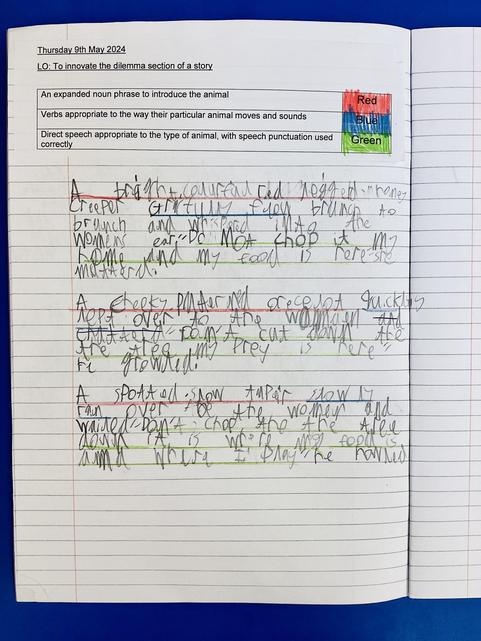 Thursday 9th May 2024
LO: To innovate the dilemma section of a story
An expanded noun phrase to introduce the animal
Red
Verbs appropriate to the way their particular animal moves and sounds
Blue
Direct speech appropriate to the type of animal, with speech punctuation used correctly
Green
A bright, red
creeper branch to
branch and into the
womens ear "Do Not chop it my
home and my food is here" she
A cheeky quickly
lept over to the women and
cut down the
my prey is here"
he growled.
A spotted slow slowly
ran over the women and
the tree
down it is where my food is
and where I play" he